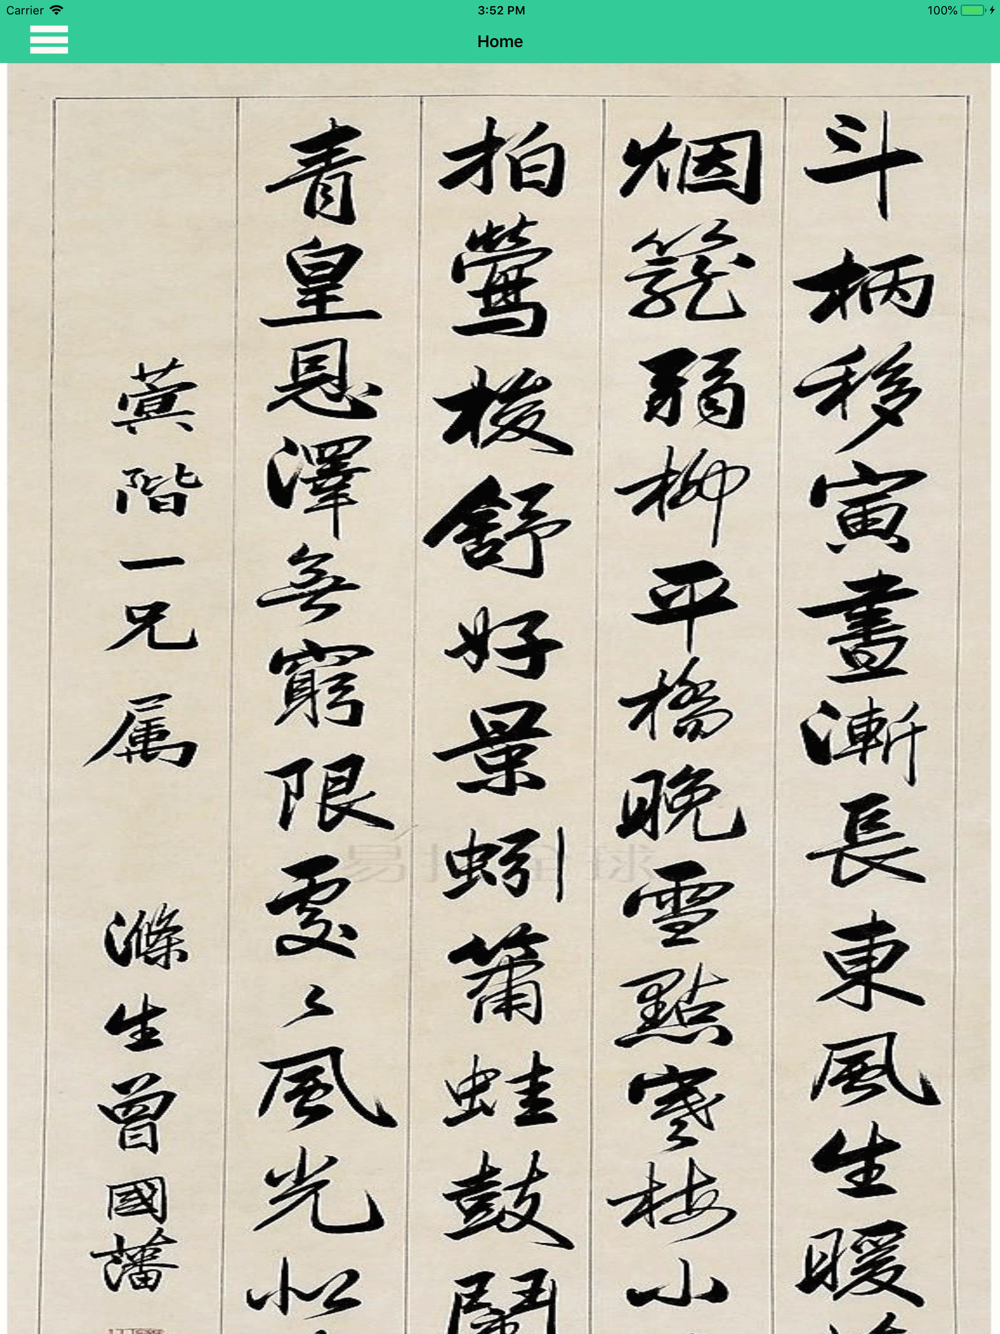 Carrier
3:52 PM
100%
Home
斗柄移寅晝漸長東風生暖
烟籠弱柳平橋晚雪點寒梅小
拍鶯梭舒好景蚓簫蛙鼓鬧
青皇恩澤無窮限處々風光
蓂階一兄属
滌生曾國藩
易拍全球